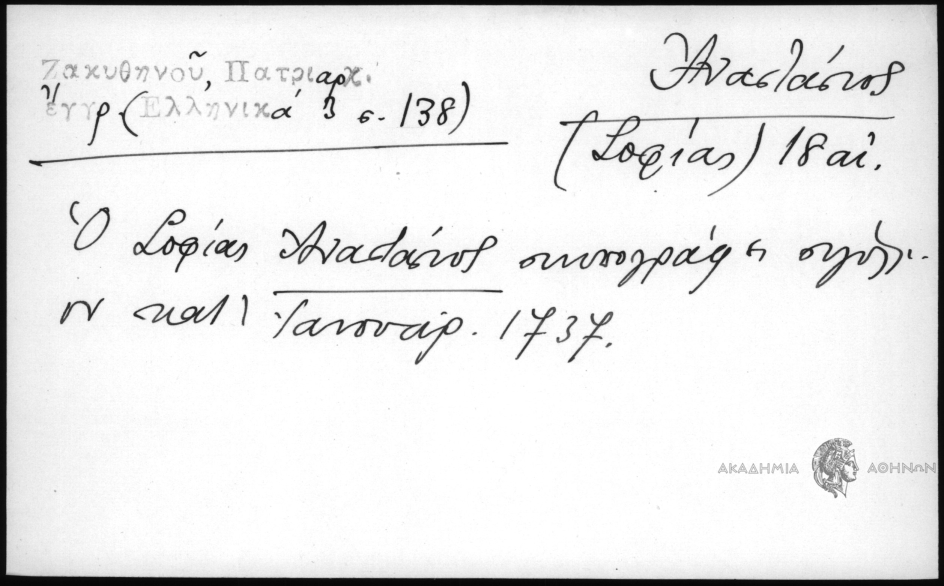 Ζακυθηνοῦ, Πατριαρχ.
ἔγγρ (Ἑλληνικά 3 σ. 138)
Ἀναστάσιος
(Σοφίας) 18 αἰ.
Ὁ Σοφίας Ἀναστάσιος συνυπογράφει σιγίλλι-
ον κατ' Ἰανουάρ. 1737.
ΑΚΑΔΗΜΙΑ ΑΘΗΝΩΝ